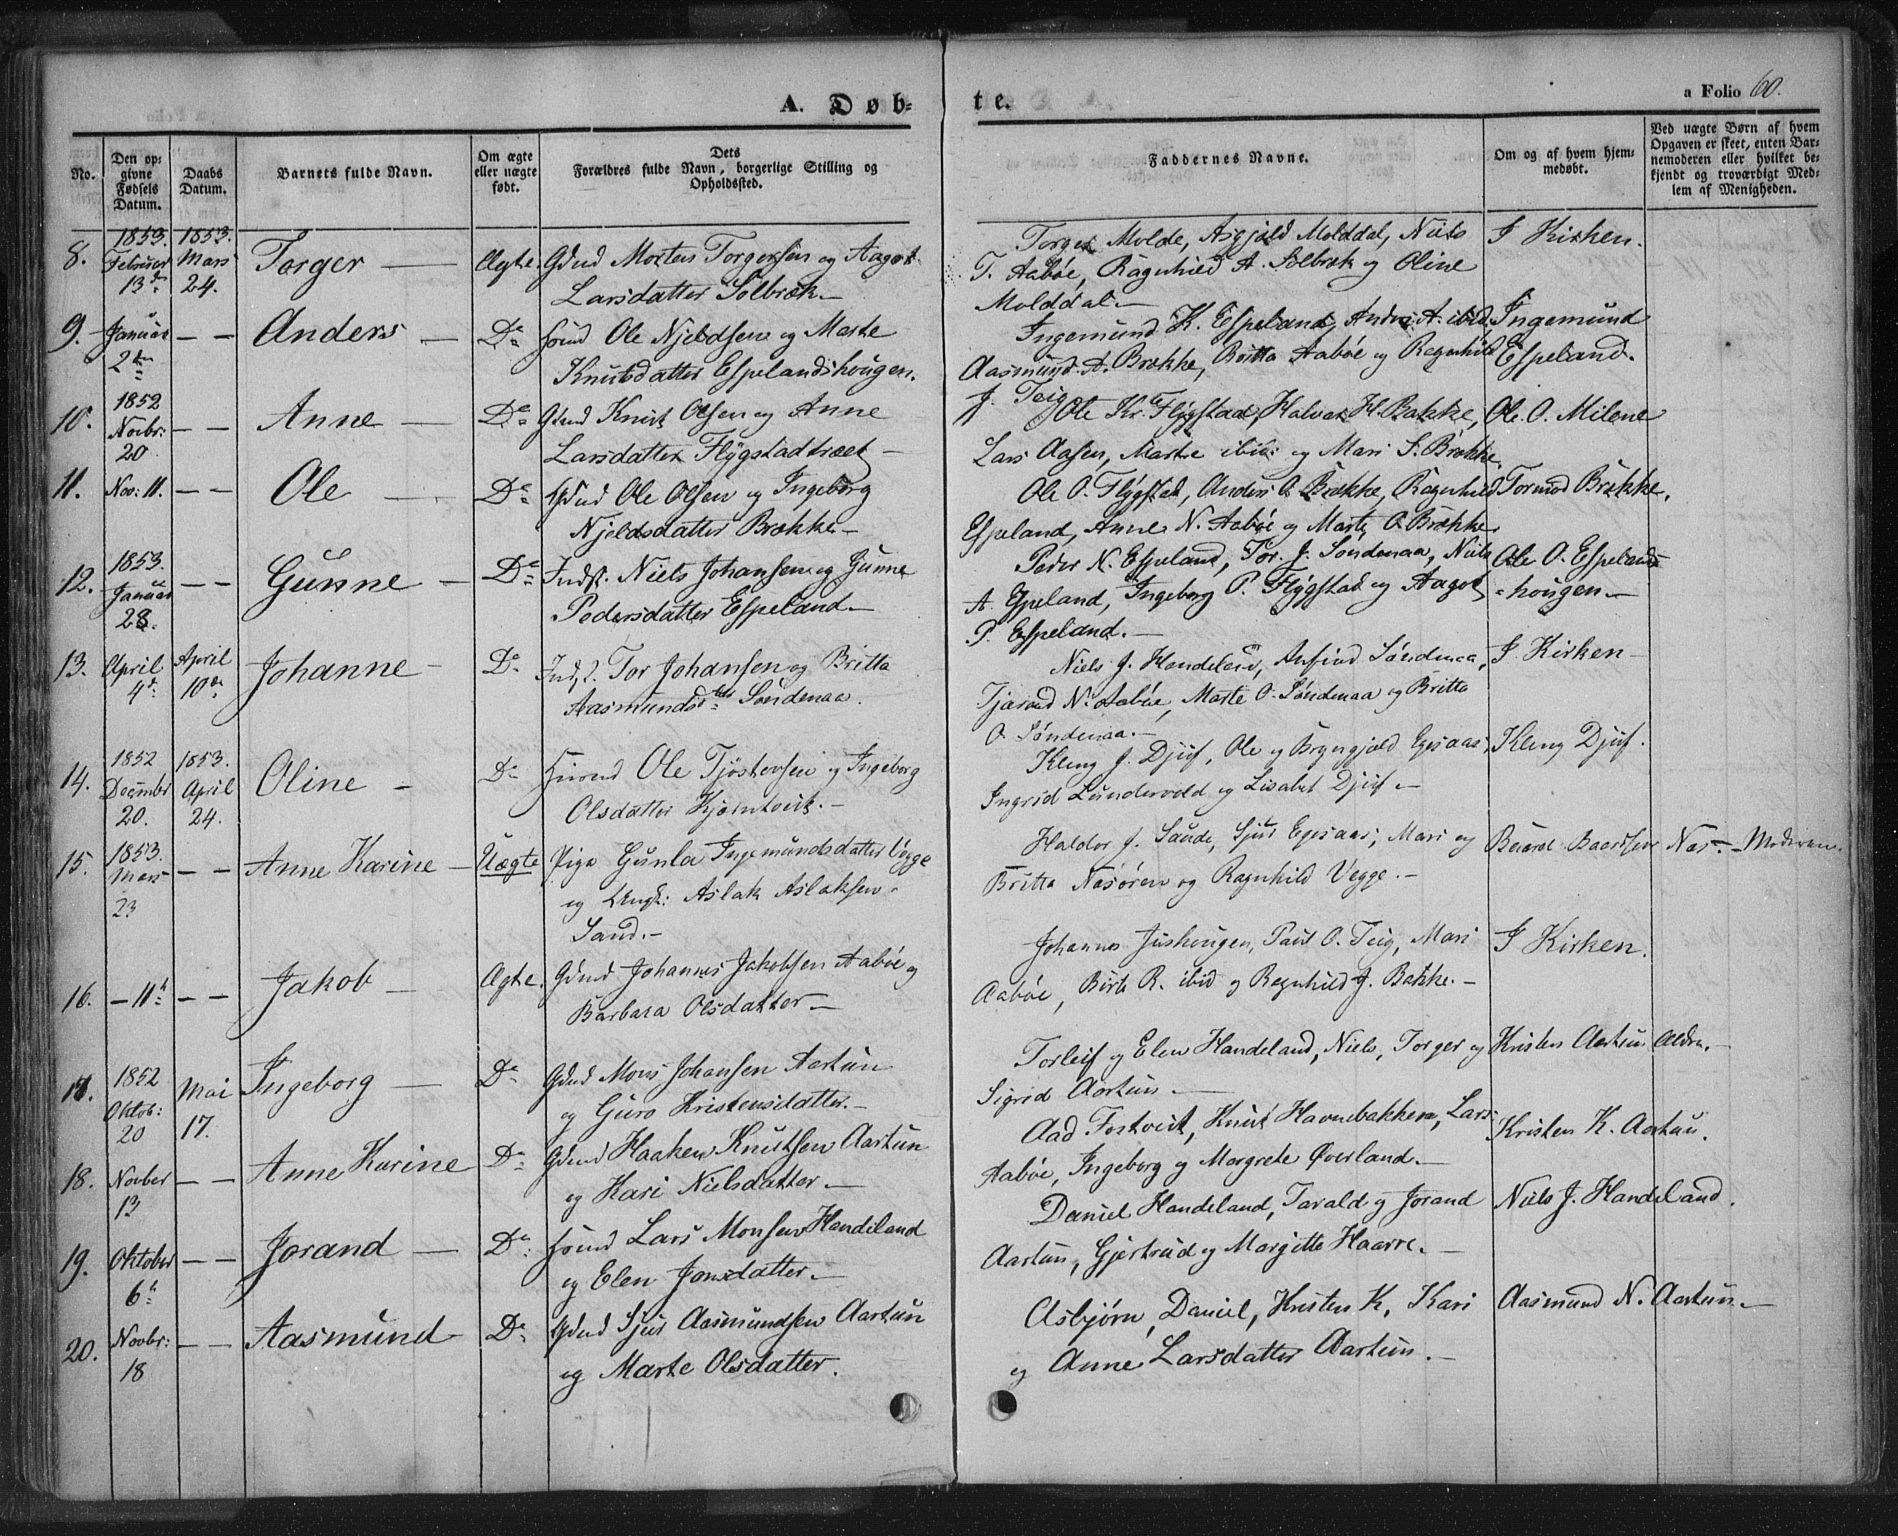 A. Døb=
te.
a Folio 60.
No.
Den op=
givne
Fødsels
Datum.
Daabs
Datum.
Barnets fulde Navn.
Om ægte
eller uægte
født.
Dets
Forældres fulde Navn, borgerlige Stilling og
Opholdssted.
Faddernes Navne.
Om og af hvem hjem=
medøbt.
Ved uægte Børn af hvem
Opgaven er skeet, enten Bar=
nemoderen eller hvilket be=
kjendt og troværdigt Med=
lem af Menigheden.
8.
1853.
Februar
13de
1853.
Mars
24.
Torger —
Ægte.
Gdmd Morten Torgersen og Aagot
Larsdatter Solbræk —
Torger Molde, Asgjæld Molddal, Niels
T. Aabøe, Ragnhild A. Solbræk og Oline
Molddal —
I Kirken.
9.
Januar
2den
— —
Anders —
Do
Hsmd Ole Njeldsen og Marte
Knutsdatter Espelandshougen.
Ingemund K. Espeland, Anders A. ibid,
Aasmund A. Brække, Britta Aabøe og Ragnhild
J. Teig
Ingemund
Espeland.
10.
1852
Novbr:
20
— —
Anne —
Do
Gdmd Knut Olsen og Anne
Larsdatter Flygstadtræet —
Ole Kr. Flygstad, Halvar H. Bakke,
Lars Aasen, Marte ibid: og Mari S. Brække
Ole. O. Milene
11.
Nov: 11.
— —
Ole —
Do
Gdmd Ole Olsen og Ingeborg
Njeldsdatter Brække —
Ole O. Flygstad, Anders O. Brække, Ragnhild
Espeland, Anne N. Aabøe og Marte O. Brække
Tormod Brække.
12.
1853.
Januar
28.
— —
Gunne —
Do
Indst. Niels Johansen og Gunne
Pedersdatter Espeland —
Peder N. Espeland, Tor. J. Søndenaa, Niels
A. Espeland, Ingeborg P. Flygstad og Aagot
P. Espeland. —
Ole O. Espelands=
=hougen —
13.
April
4de
April
10de
Johanne —
Do
Indst. Tor Johansen og Britta
Aasmundsdtr Søndenaa.
Niels J. Handeland, Anfind Søndenaa,
Tjerand N. Aabøe, Marte O. Søndenaa og Britta
O. Søndenaa. —
I Kirken —
14.
1852
Decembr
20.
1853.
April
24.
Oline —
Do
Ole Tjøstevsen og Ingeborg
Olsdatter Kjørntveit. —
Kleng J. Djuf, Ole og Bryngjeld Egsaas,
Ingrid Lundervold og Lisabet Djuf —
Kleng Djuf.
15.
1853.
Mars
23
— —
Anne Karine —
Uægte
Pige Gunla Ingemundsdatter Vegge
og Ungk: Aslak Aslaksen
Sand. —
Haldor J. Saude, Sjur Egsaas; Mari og
Britta Næsøren og Ragnhild Vegge. —
Baard Baardsen Næs. —
Moderen.
16.
— 11te
— —
Jakob —
Ægte.
Gdmd Johannes Jakobsen Aabøe og
Barbara Olsdatter —
Johannes Juskougen, Paul O. Teig, Mari
Aabøe, Birte R. ibid og Ragnhild J. Bakke. —
I Kirken.
17.
1852
Oktob:
20
Mai
17.
Ingeborg —
Do
Gdmd Mons Johansen Aartun
og Guro Kristensdatter. —
Torleif og Elen Handeland, Niels, Torger og
Sigrid Aartun —
Kristen Aartun
18.
Novber
13
— —
Anne Karine
Do
Gdmd Haaken Knutsen Aartun
og Kari Nielsdatter —
Aad Fostveit, Knut Havnebakken, Lars
Aabøe, Ingeborg og Margrete Øverland. —
Kristen K. Aartun.
19.
Oktober
6te
— —
Jorand —
Do
Hsmd Lars Monsen Handeland
og Elen Jonsdatter. —
Daniel Handeland, Tarald og Jorand
Aartun, Gjertrud og Margitte Haarre. —
Niels J. Handeland.
20.
Novbr:
18
— —
Aasmund
Do
Gdmd Sjur Aasmundsen Aartun
og Marte Olsdatter.
Asbjørn, Daniel, Kristen K, Kari
og Anne Larsdatter Aartun. —
Aasmund N. Aartun. —